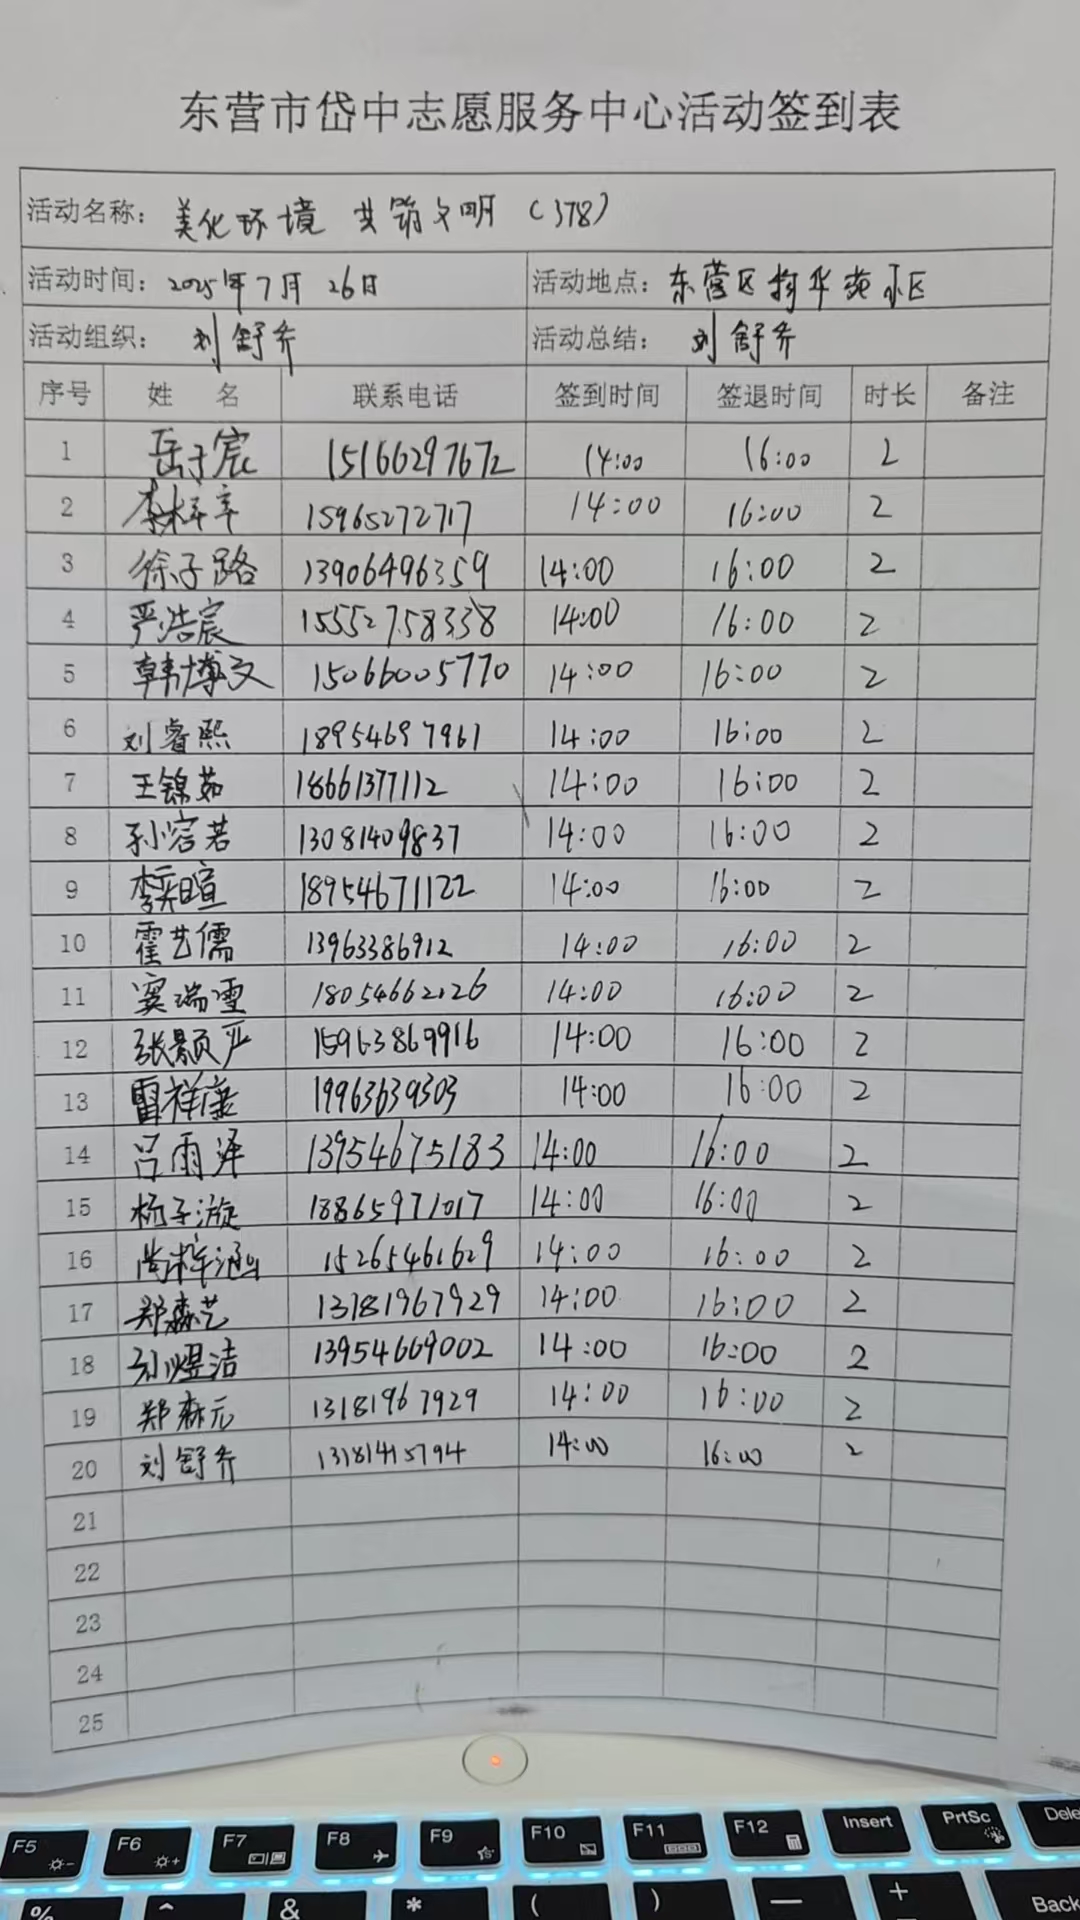 东营市岱中志愿服务中心活动签到表
活动名称: 美化环境 共筑文明 (378)
活动时间: 2025年7月26日 活动地点: 东营区 华苑小区
活动组织: 刘舒乔 活动总结: 刘舒乔
序号 姓 名 联系电话 签到时间 签退时间 时长 备注
1 岳子宸 15166297672 14:00 16:00 2
2 李梓辛 15965272717 14:00 16:00 2
3 徐子路 13906496359 14:00 16:00 2
4 严浩宸 15552758338 14:00 16:00 2
5 韩博文 15066005770 14:00 16:00 2
6 刘睿熙 18954697961 14:00 16:00 2
7 王锦茹 18661377112 14:00 16:00 2
8 孙容若 13081409837 14:00 16:00 2
9 李奕暄 18954671122 14:00 16:00 2
10 霍艺儒 13963386912 14:00 16:00 2
11 窦瑞雪 18054662126 14:00 16:00 2
12 张颢严 15963869916 14:00 16:00 2
13 雷祥康 19963639303 14:00 16:00 2
14 吕雨泽 13954675183 14:00 16:00 2
15 杨子漩 18865971017 14:00 16:00 2
16 尚梓涵 15265461629 14:00 16:00 2
17 郑森艺 13181967929 14:00 16:00 2
18 刘煜洁 13954669002 14:00 16:00 2
19 郑森元 13181967929 14:00 16:00 2
20 刘舒乔 13181415794 14:00 16:00 2
21
22
23
24
25
F5 F6 F7 F8 F9 F10 F11 F12 Insert PrtSc Dele
% ^ & * ( ) — + Back